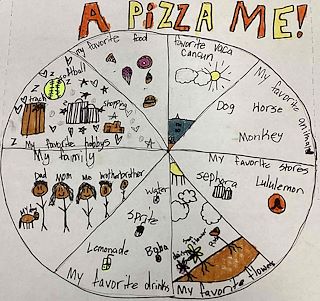 A PIZZA ME!
My favorite food
favorite vaca
Cancun
My favorite animals
Dog Horse
Monkey
My favorite stores
Sephora
Lululemon
My favorite flowers
My favorite drinks
Water
Sprite
Lemonade
Boba
My family
Dad Mom Me brother brother
My dog
My favorite hobbys
softball
track
shopping